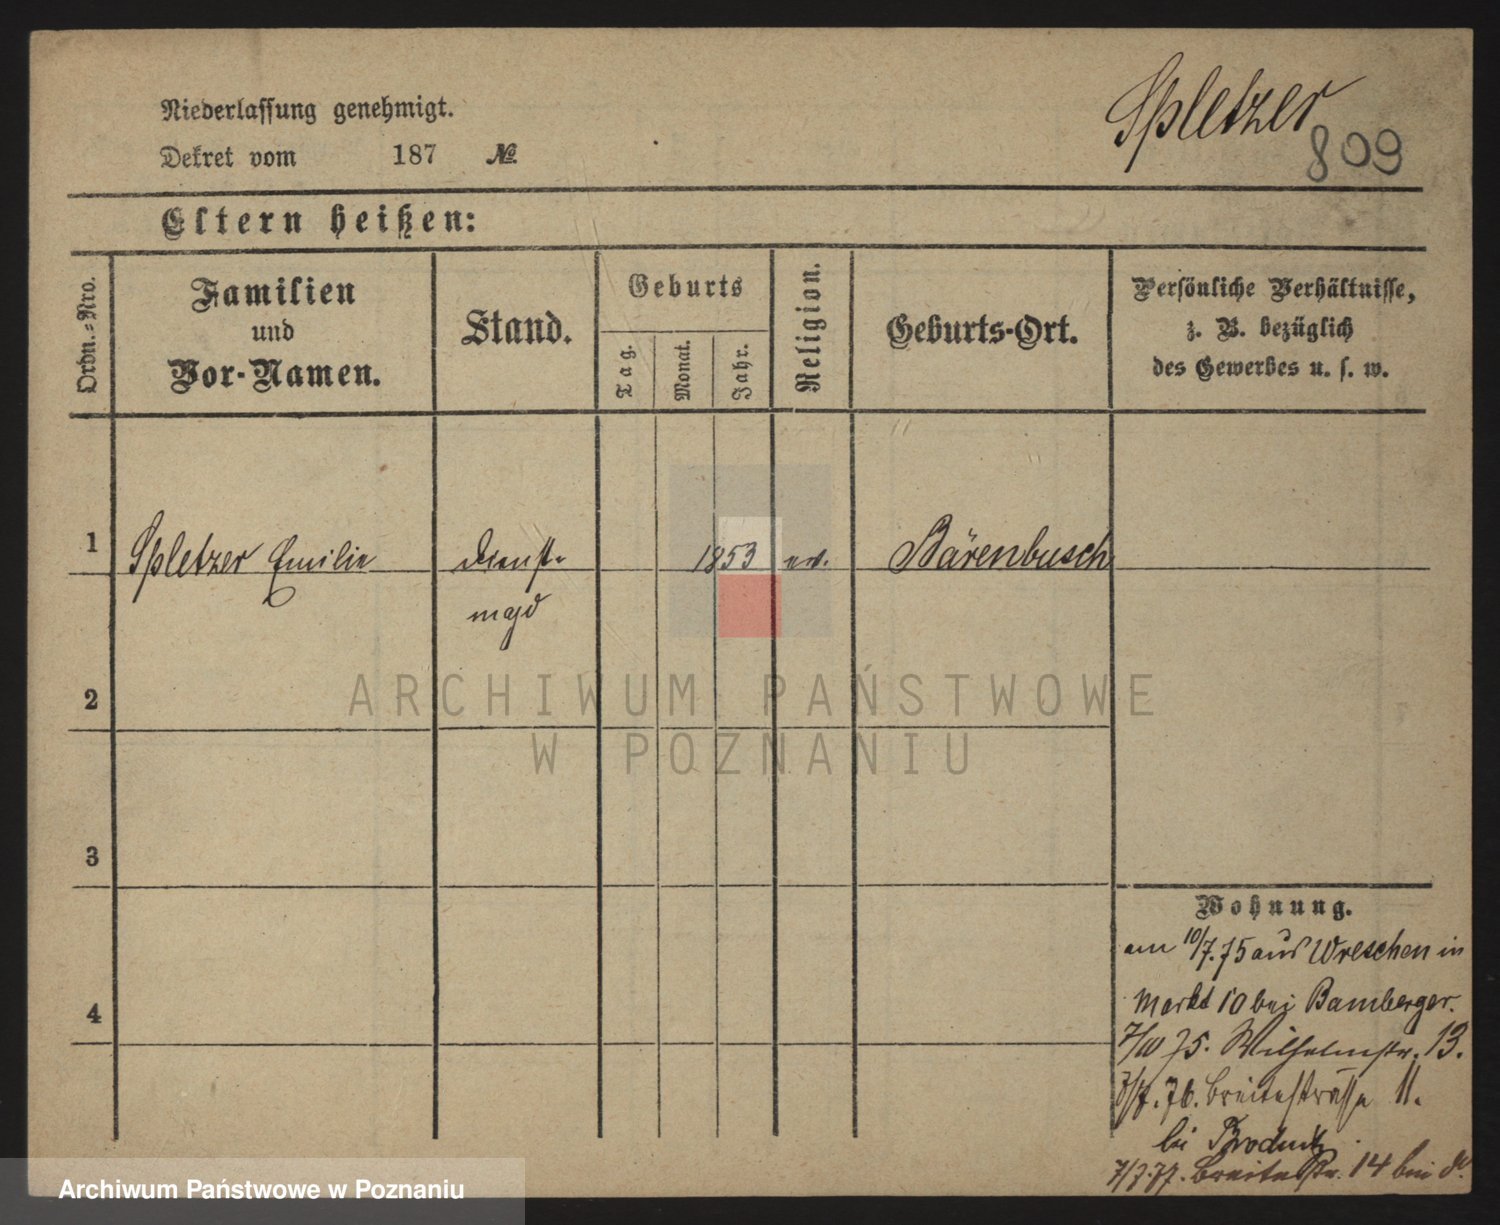 Niederlassung genehmigt.
Dekret vom 187 №
Spletzer
809
Eltern heißen:
Ordn.-Nro.
Familien
und
Vor-Namen.
Stand.
Geburts
Tag.
Monat.
Jahr.
Religion.
Geburts-Ort.
Persönliche Verhältnisse,
z. B. bezüglich
des Gewerbes u. s. w.
1 Spletzer Emilie Dienst- 1853 ev. Bärenbusch
magd
2
3
4
ARCHIWUM PAŃSTWOWE
W POZNANIU
Wohnung.
am 10/7.75 aus Wreschen in
Markt 10 bei Bamberger.
7/10 75. Wilhelmstr. 13.
7/7.76. Breitestrasse 11.
bei Brodnitz
7/7.77. Breitestr. 14 bei
Archiwum Państwowe w Poznaniu